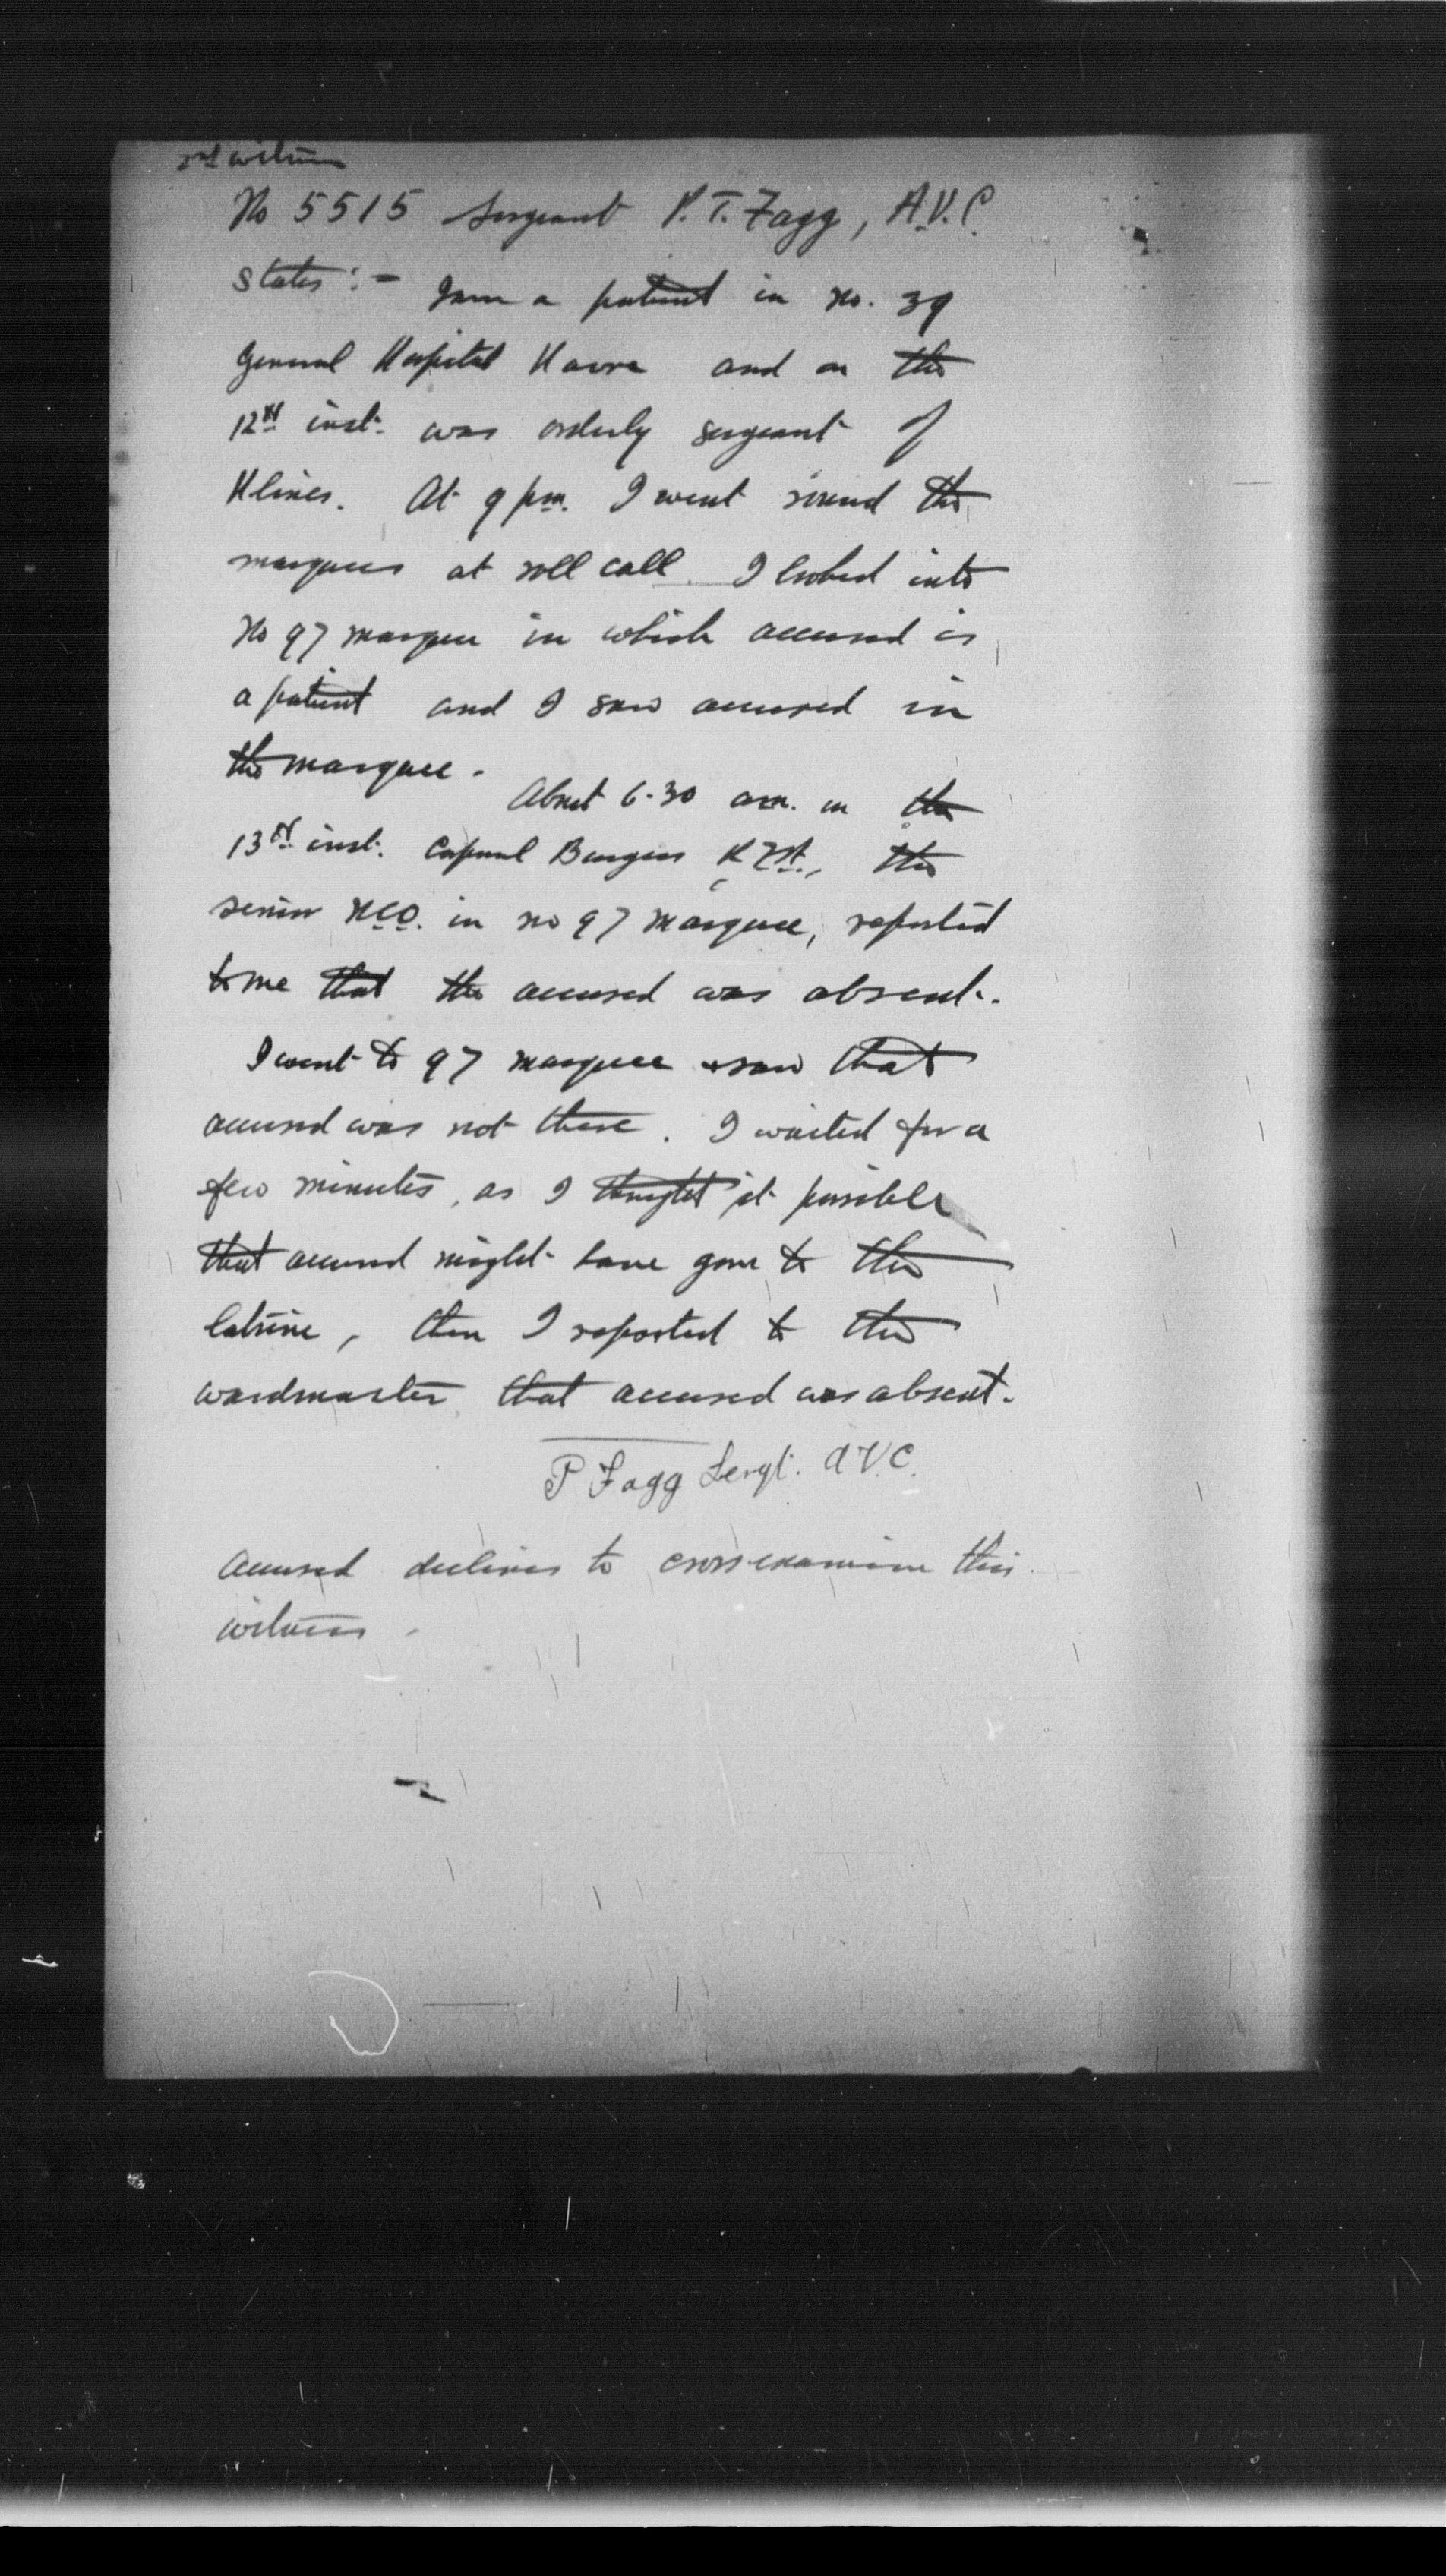 2nd witness
No 5515 Sergeant P. T. Fagg, A.V.C.
states :- I am a patient in No. 39
General Hospital Havre and on the
12th inst. was orderly sergeant of
H lines. At 9 pm. I went round the
marquees at roll call. I looked into
No 97 marquee in which accused is
a patient and I saw accused in
the marquee.
About 6-30 am. on the
13th inst. Corporal Burgess the
senior NCO. in no 97 marquee, reported
to me that the accused was absent.
I went to 97 marquee & saw that
accused was not there. I waited for a
few minutes, as I thought it possible
that accused might have gone to the
latrine, then I reported to the
wardmaster that accused was absent.
P Fagg Sergt. A.V.C.
Accused declines to cross-examine this
witness.